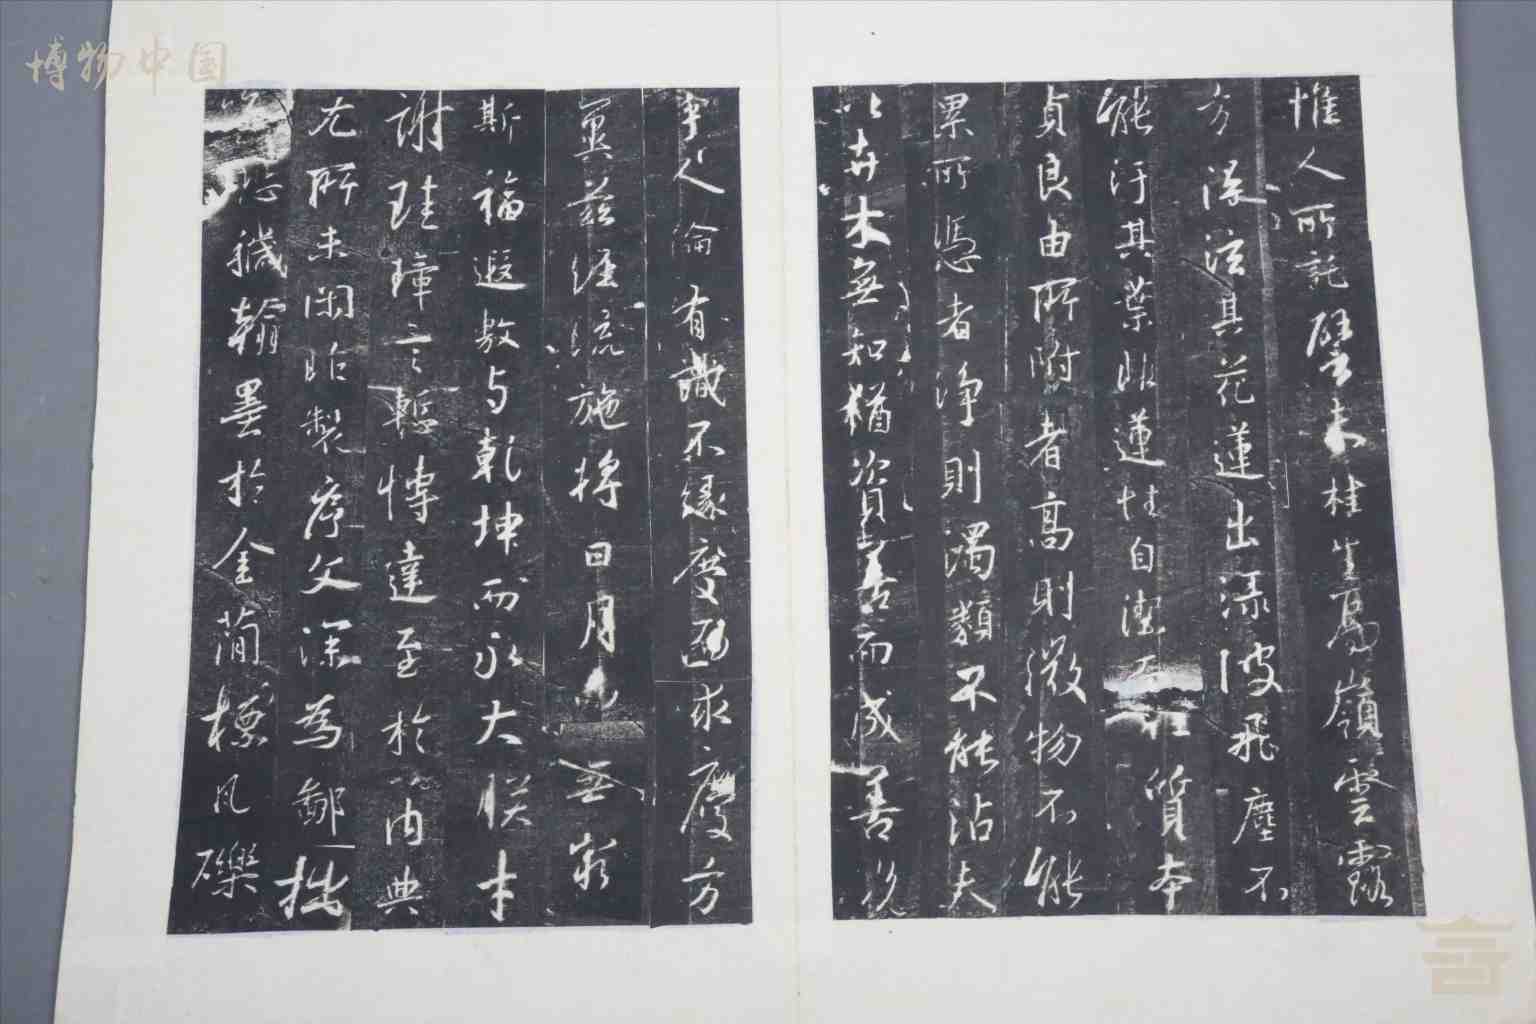 博物中国
惟人所託譬夫桂生高嶺雲露
方得泫其花蓮出淥波飛塵不
能汙其葉非蓮性自潔而桂質本
貞良由所附者高則微物不能
累所憑者淨則濁類不能沾夫
以卉木無知猶資善而成善況
乎人倫有識不緣慶而求慶方
冀茲經流施將日月而無窮
斯福遐敷與乾坤而永大朕才
謝珪璋言慙博達至於內典
尤所未閑昨製序文深為鄙拙
恐穢翰墨於金簡標瓦礫